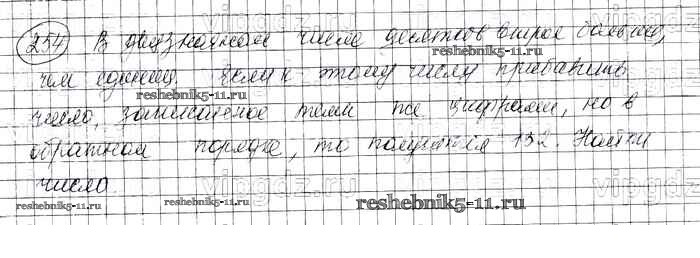 254 В двузначном числе десятков втрое больше,
чем единиц. Если к этому числу прибавить
число, записанное теми же цифрами, но в
обратном порядке, то получится 132. Найти
число.
reshebnik5-11.ru
reshebnik5-11.ru
reshebnik5-11.ru
reshebnik5-11.ru
vipgdz
vipgdz